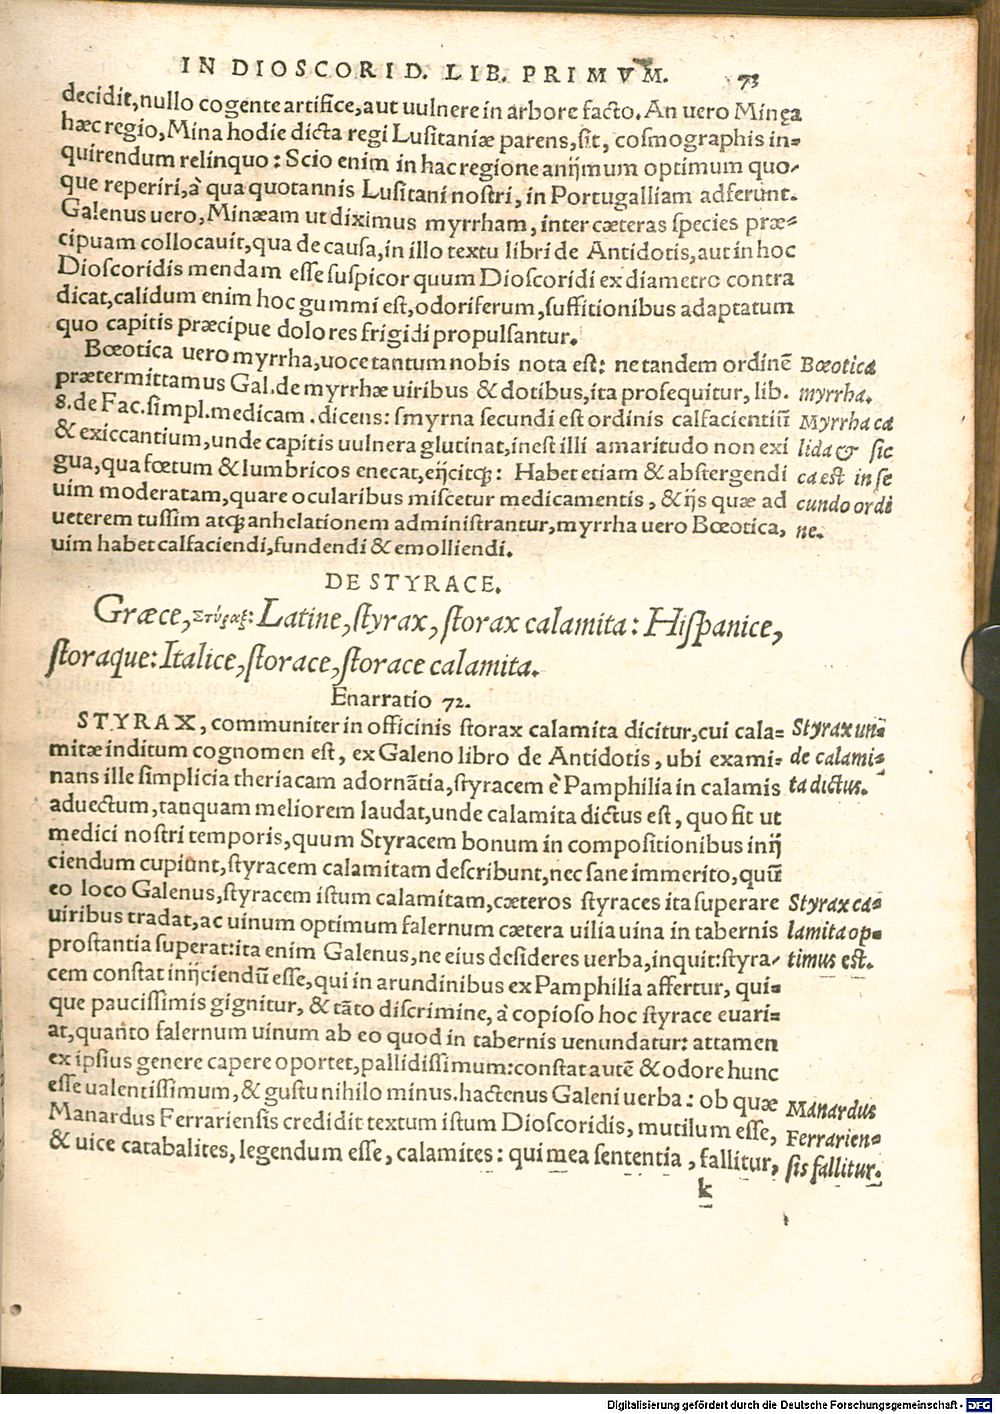 IN DIOSCORID. LIB. PRIMVM. 73
decidit, nullo cogente artifice, aut uulnere in arbore facto. An uero Minęa
hæc regio, Mina hodie dicta regi Lusitaniæ parens, sit, cosmographis in=
quirendum relinquo: Scio enim in hac regione anijmum optimum quo-
que reperiri, à qua quotannis Lusitani nostri, in Portugalliam adferunt.
Galenus uero, Minæam ut diximus myrrham, inter cæteras species præ=
cipuam collocauit, qua de causa, in illo textu libri de Antidotis, aut in hoc
Dioscoridis mendam esse suspicor quum Dioscoridi ex diametro contra
dicat, calidum enim hoc gummi est, odoriferum, suffitionibus adaptatum
quo capitis præcipue dolores frigidi propulsantur.
Bœotica uero myrrha, uoce tantum nobis nota est: ne tandem ordinē
Bœotica
prætermittamus Gal. de myrrhæ uiribus & dotibus, ita prosequitur, lib.
myrrha.
8. de Fac. simpl. medicam. dicens: smyrna secundi est ordinis calfacientiū
Myrrha ca
& exiccantium, unde capitis uulnera glutinat, inest illi amaritudo non exi
lida & sic
gua, qua fœtum & lumbricos enecat, eijcitq́;: Habet etiam & abstergendi
ca est in se
uim moderatam, quare ocularibus miscetur medicamentis, & ijs quæ ad
cundo ordi
ueterem tussim atq; anhelationem administrantur, myrrha uero Bœotica,
ne.
uim habet calfaciendi, fundendi & emolliendi.
DE STYRACE.
Græce, Στύραξ: Latine, styrax, storax calamita: Hispanice,
storaque: Italice, storace, storace calamita.
Enarratio 72.
STYRAX, communiter in officinis storax calamita dicitur, cui cala=
Styrax un=
mitæ inditum cognomen est, ex Galeno libro de Antidotis, ubi exami=
de calami=
nans ille simplicia theriacam adornātia, styracem è Pamphilia in calamis
ta dictus.
aduectum, tanquam meliorem laudat, unde calamita dictus est, quo fit ut
medici nostri temporis, quum Styracem bonum in compositionibus inij
ciendum cupiunt, styracem calamitam describunt, nec sane immerito, quū
eo loco Galenus, styracem istum calamitam, cæteros styraces ita superare
Styrax ca=
uiribus tradat, ac uinum optimum falernum cætera uilia uina in tabernis
lamita op=
prostantia superat: ita enim Galenus, ne eius desideres uerba, inquit: styra-
timus est.
cem constat inijciendū esse, qui in arundinibus ex Pamphilia affertur, qui=
que paucissimis gignitur, & tāto discrimine, à copioso hoc styrace euari=
at, quanto falernum uinum ab eo quod in tabernis uenundatur: attamen
ex ipsius genere capere oportet, pallidissimum: constat autē & odore hunc
esse ualentissimum, & gustu nihilo minus. hactenus Galeni uerba: ob quæ
Manardus
Manardus Ferrariensis credidit textum istum Dioscoridis, mutilum esse,
Ferrarien=
& uice catabalites, legendum esse, calamites: qui mea sententia, fallitur,
sis fallitur.
k
Digitalisierung gefördert durch die Deutsche Forschungsgemeinschaft - DFG